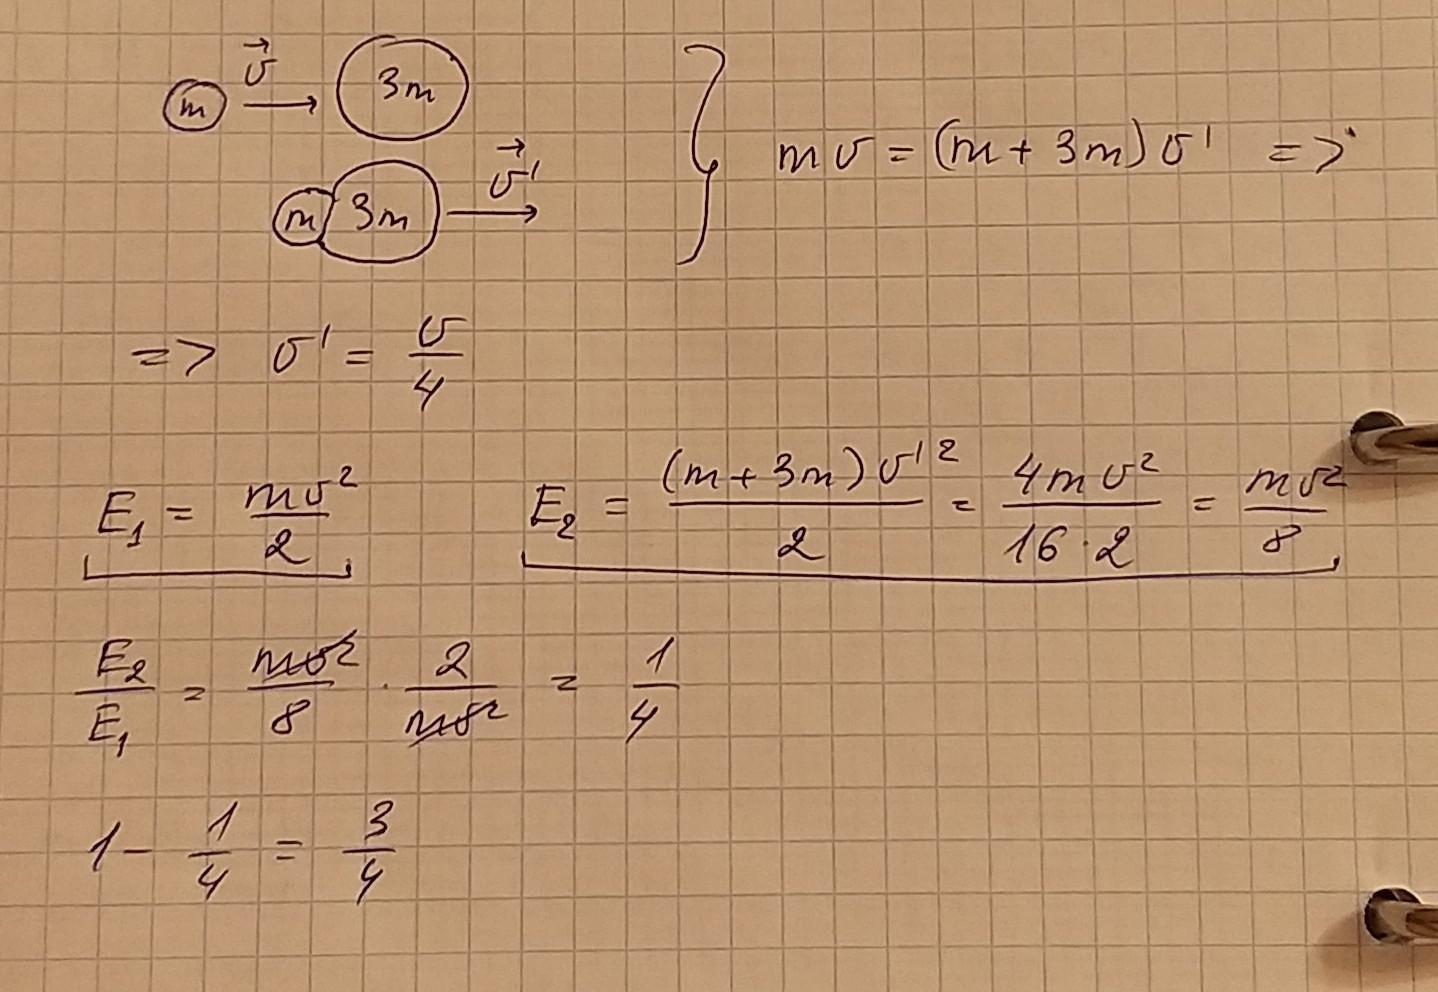 m v⃗ 3m
m 3m v⃗'
mv = (m + 3m) v' =>
=> v' = v/4
E₁ = mv²/2 E₂ = (m + 3m) v'²/2 = 4mv²/(16·2) = mv²/8
E₂/E₁ = mv²/8 · 2/mv² = 1/4
1 - 1/4 = 3/4